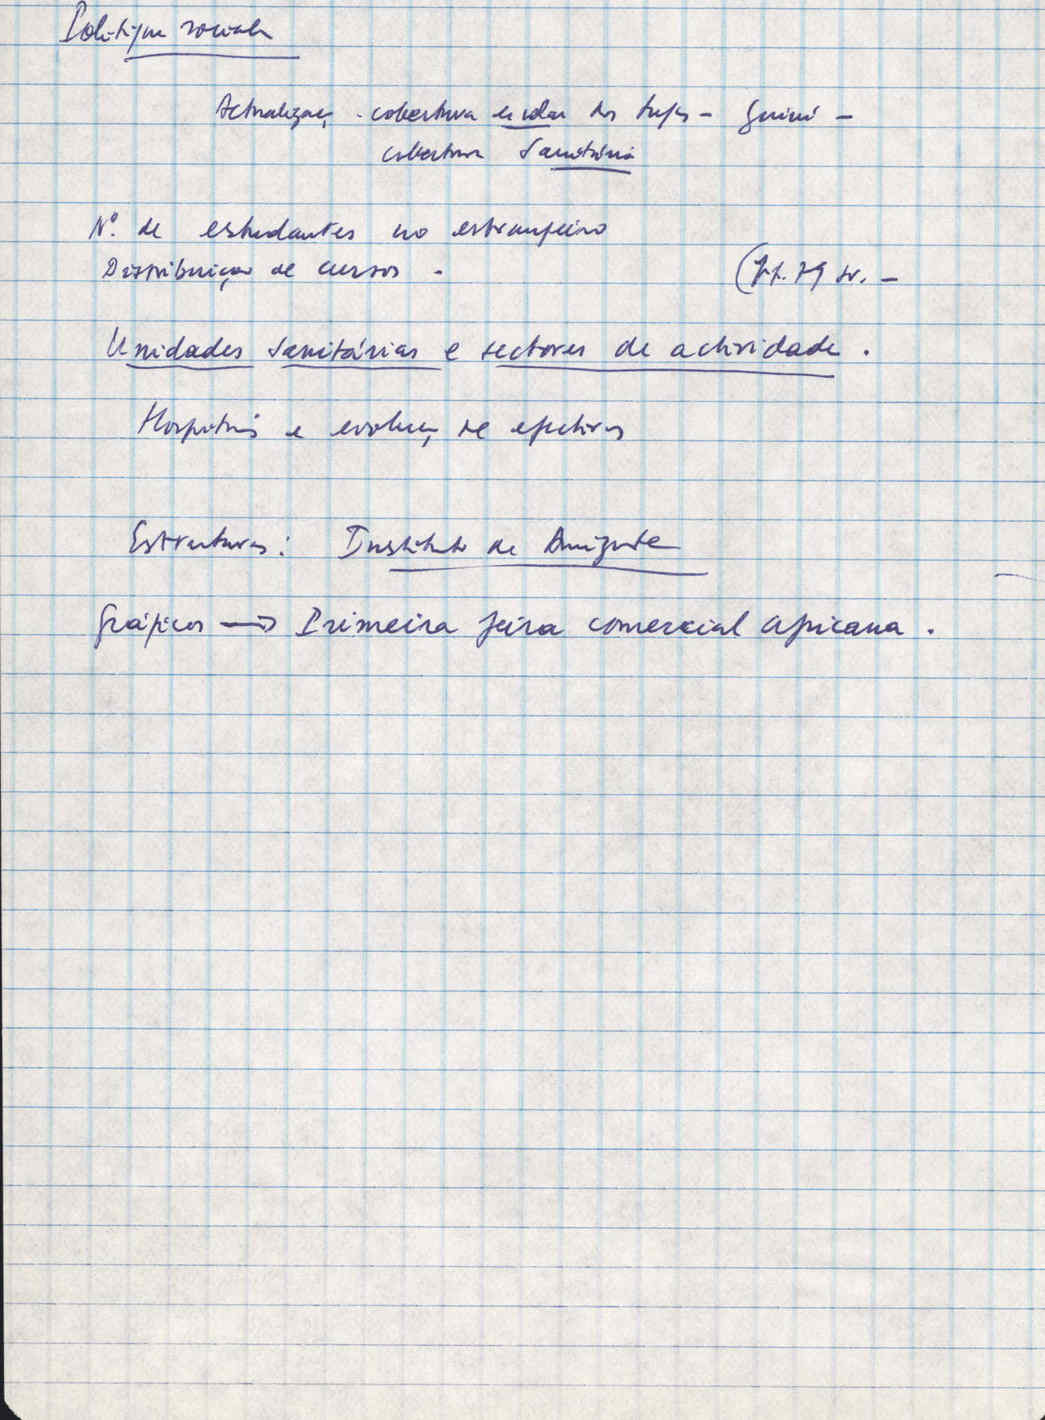 Politique sociale
Actualizaç. cobertura escolar dos – Guiné –
cobertura Sanitária
Nº. de estudantes no estrangeiro
Distribuiçao de cursos -
Unidades Sanitárias e sectores de actividade.
Hospitais e evoluç. de efectivos
Estructuras: Instituto de Amizade
Gráficos → Primeira feira comercial africana.